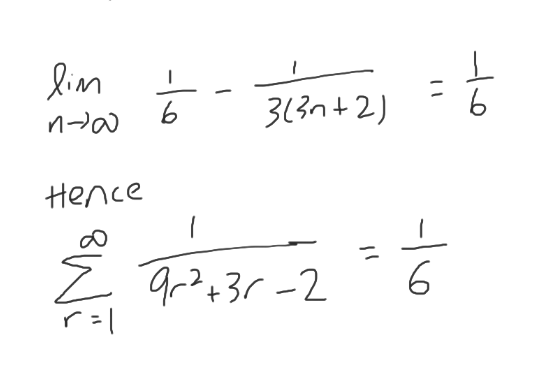 lim n→∞ 1/6 - 1/(3(3n+2)) = 1/6
Hence
∑ r=1 ∞ 1/(9r²+3r-2) = 1/6